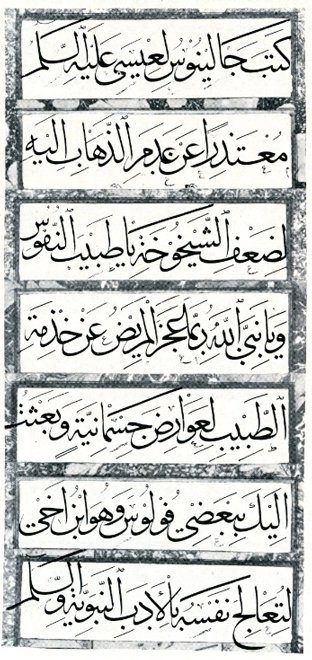 كَتَبَ جَالِينُوسُ لِعِيسَى عَلَيْهِ السَّلَم
مُعْتَذِرًا عَنْ عَدَمِ الذَّهَابِ اِلَيْهِ
لِضَعْفِ الشَّيْخُوخَةِ يَا طَبِيبَ النُّفُوسِ
وَيَا نَبِيَّ اللهِ رُبَمَا عَجَزَ المَرِيضُ عَنْ خِذْمَةِ
الطَّبِيبِ لِعَوَارِضَ جِسْمَانِيَّةٍ وَبَعَثْتُ
اِلَيْكَ بِبَعْضِي فُولُوسَ وَهُوَ ابْنُ اُخْتِي
لِتُعَالِجَ نَفْسَهُ بِالْاَدَبِ النَّبَوِيَّةِ وَالسَّلَم